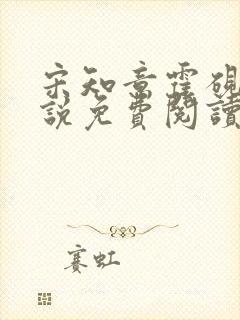 宋知意霍硯
說免費閱讀
賽虹